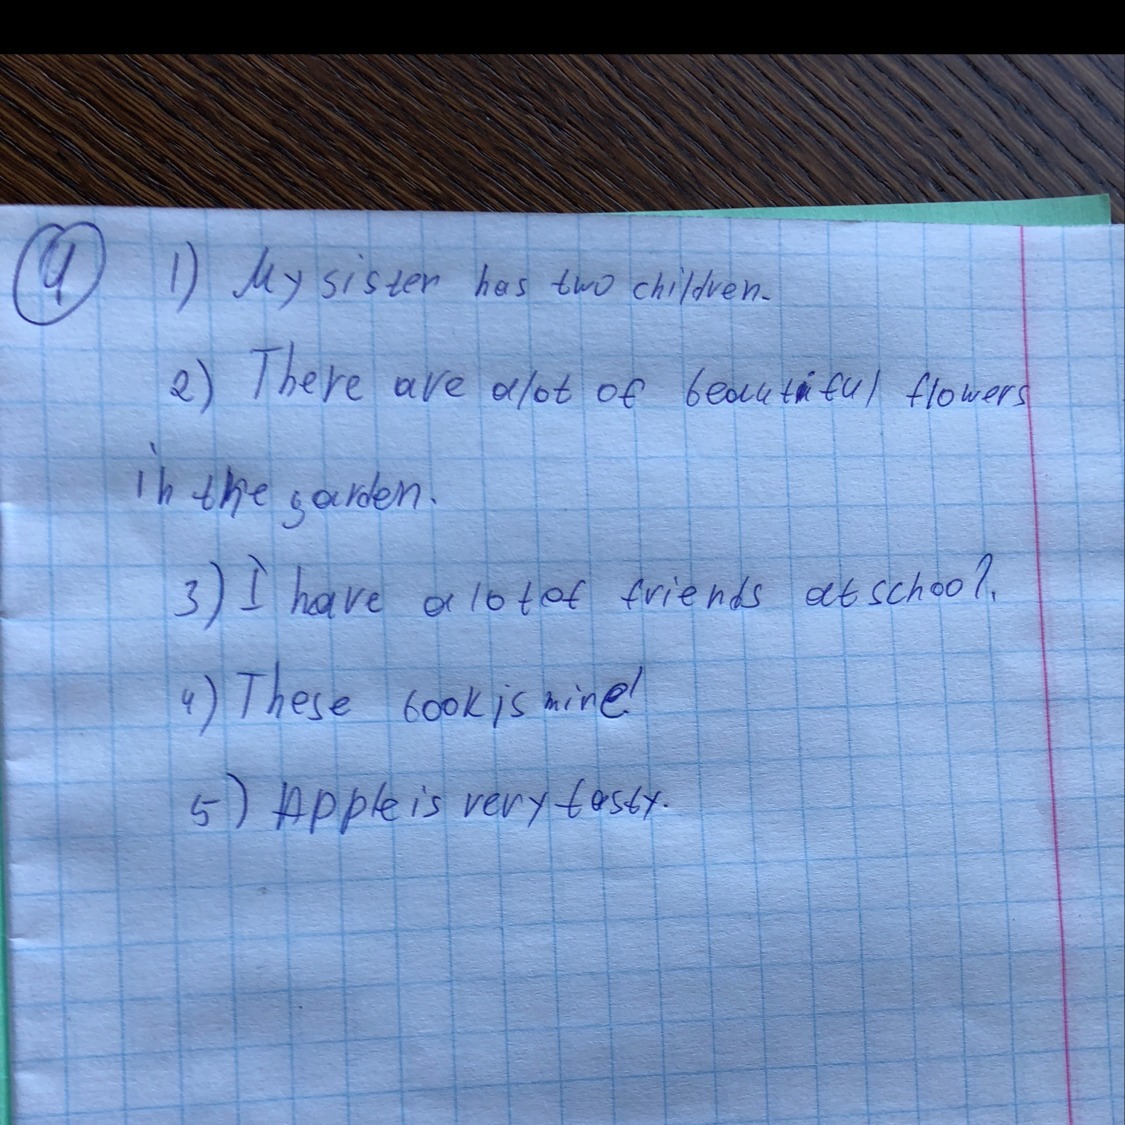 4 1) My sister has two children.
2) There are alot of beautiful flowers
in the garden.
3) I have a lot of friends at school.
4) These book is mine!
5) Apple is very tasty.